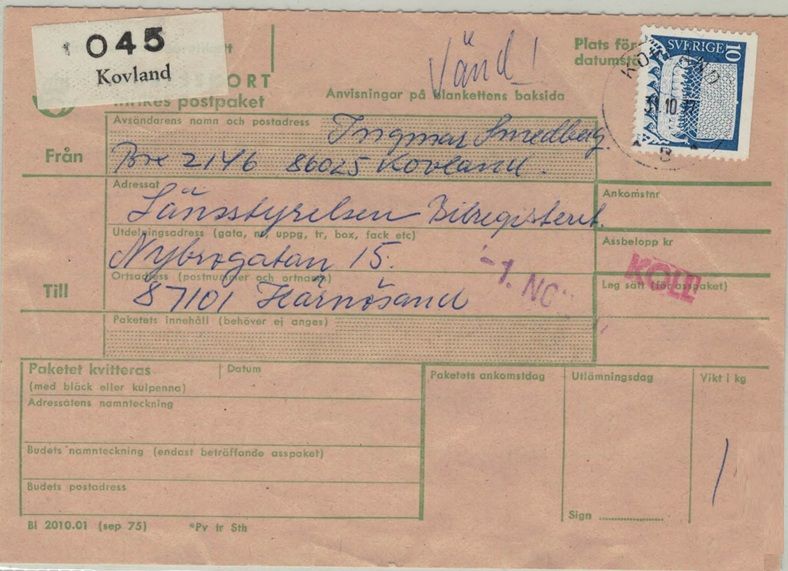 045
Kovland
Vänd!
Plats för
datumst
SVERIGE 10
KOVLAND
31.10.77
Inrikes postpaket
Anvisningar på blankettens baksida
Avsändarens namn och postadress
Ingmar Smedberg
Från
Box 2146 86025 Kovland.
Adressat
Länsstyrelsen Bilregisteret.
Ankomstnr
Utdelningsadress (gata, nr, uppg, tr, box, fack etc)
Assbelopp kr
Nybrogatan 15.
-1. NO
KOLL
Ortsadress (postnummer och ortnamn)
Leg sätt (för asspaket)
Till
87101 Härnösand
Paketets innehåll (behöver ej anges)
Paketet kvitteras
Datum
Paketets ankomstdag
Utlämningsdag
Vikt i kg
(med bläck eller kulpenna)
Adressatens namnteckning
Budets namnteckning (endast beträffande asspaket)
1
Budets postadress
Sign
Bl 2010.01 (sep 75) *Pv tr Sth